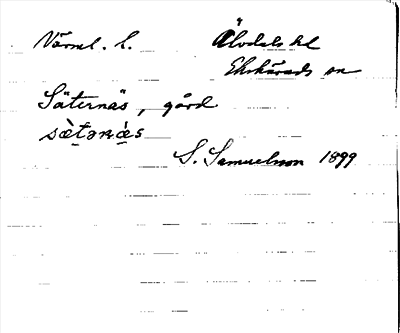 Värml. l. Älvdals hd
Ekshärads sn
Säternäs, gård
sæ̀təɳæ̀s
S. Samuelsson 1899